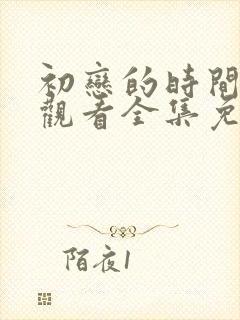 初戀的時間
觀看全集免
陌夜1